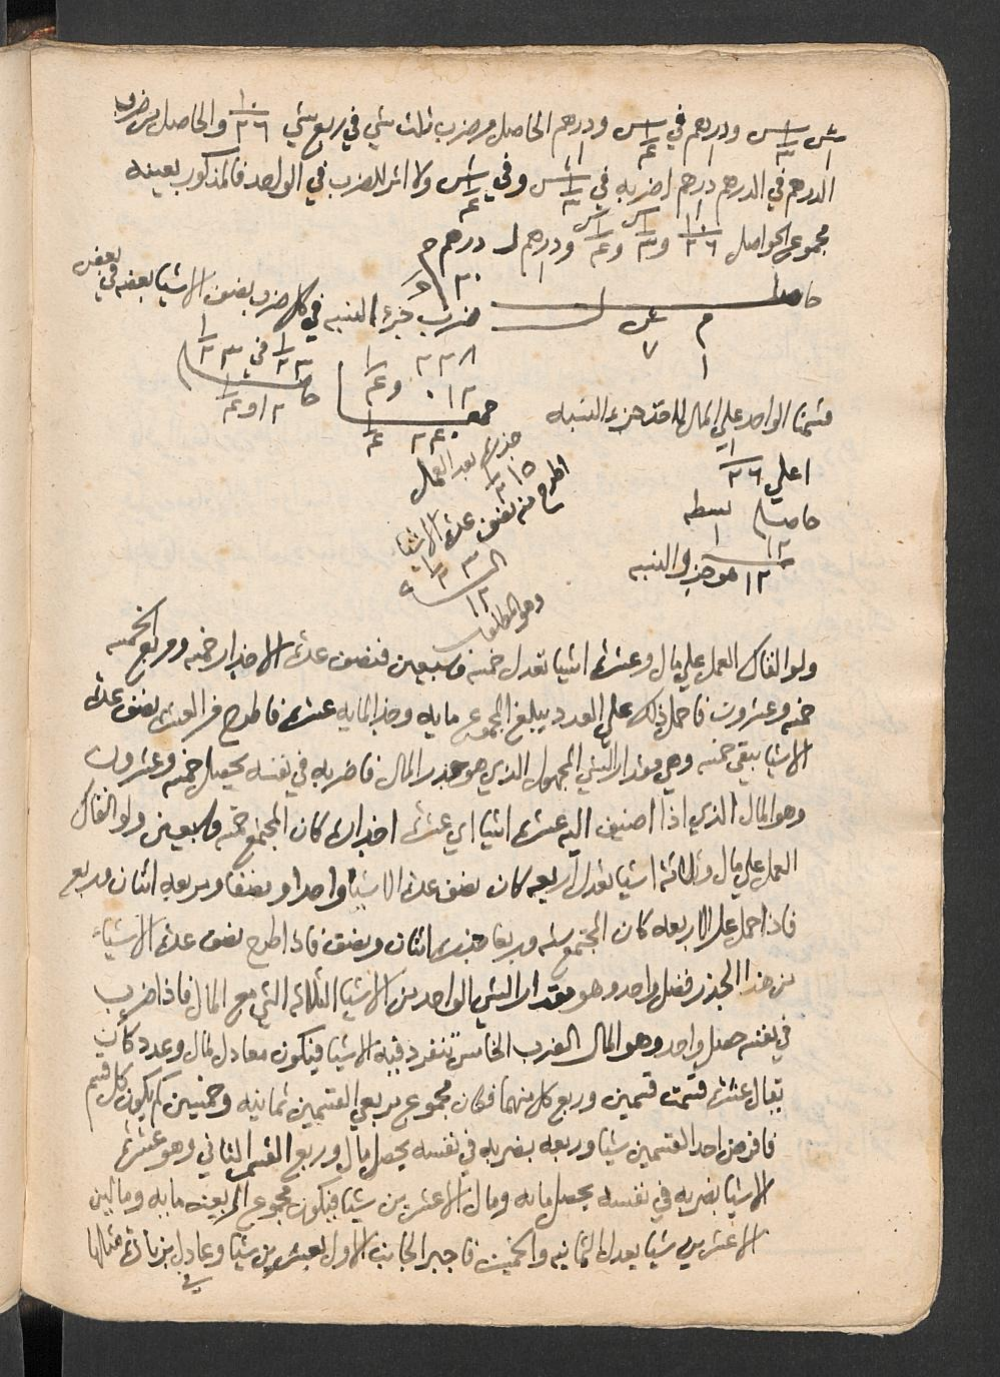 ودرهم في ودرهم الحاصل من ضرب ثلث شي في ربع شي والحاصل من ضرب
الدرهم في الدرهم درهم اضربه في وفي ولا اثر للضرب في الواحد فالمذكور بعينه
مجموع الحواصل و و ودرهم درهم
ضرب جزء النسبه في كل ضرب نصف الاشيا بعضه في بعض
قسمنا الواحد علي المال لاخذ جزء النسبه
جمعـ
جذره بعد العمل
اعلي
اطرح منه نصف عدة الاشيا
بسطه
هو جزء النسبه
وهو المطلوب
ولو القاك العمل علي مال وعشرة اشيا تعدل خمسة وسبعين فنصف عدة الاجذار خمسه ومربع الخمسه
خمسه وعشرون فاحمل ذلك علي العدد يبلغ المجموع مايه وجذر المايه عشرة فاطرح من العشرة نصف عدة
الاشيا يبقي خمسه وهي مقدار الشي المجهول الذي هو جذر المال فاضربه في نفسه يحصل خمسه وعشرون
وهو المال الذي اذا اضيف اليه عشرة اشيا اي عشرة اجذاره كان المجتمع خمسه وسبعين ولو القاك
العمل علي مال وثلاثة اشيا تعدل اربعه كان نصف عدة الاشيا واحدا ونصفا ومربعه اثنان وربع
فاذا حمل علي الاربعه كان المجتمع سته وربعا جذره اثنان ونصف فاذا طرح نصف عدة الاشياء
من هذا الجذر فضل واحد وهو مقدار الشي الواحد من الاشيا الثلاثه التي مع المال فاذا ضرب
في نفسه حصل واحد وهو المال الضرب الخامس تنفرد فيه الاشيا فيكون معادل لمال وعدد كان
يقال عشرة قسمت قسمين وربع كل منهما فكان مجموع مربعي القسمين ثمانيه وخمسين كم يكون كل قسم
فافرض احد القسمين شيا وربعه بضربه في نفسه يحصل مال وربع القسم الثاني وهو عشرة
الا شيا بضربه في نفسه يحصل مايه ومال الا عشرين شيا فيكون مجموع المربعين مايه ومالين
الا عشرين شيا يعدل الثمانيه والخمسين فاجبر الجانب الاول بعشرين شيا وعادل بزيادة مثلها
في